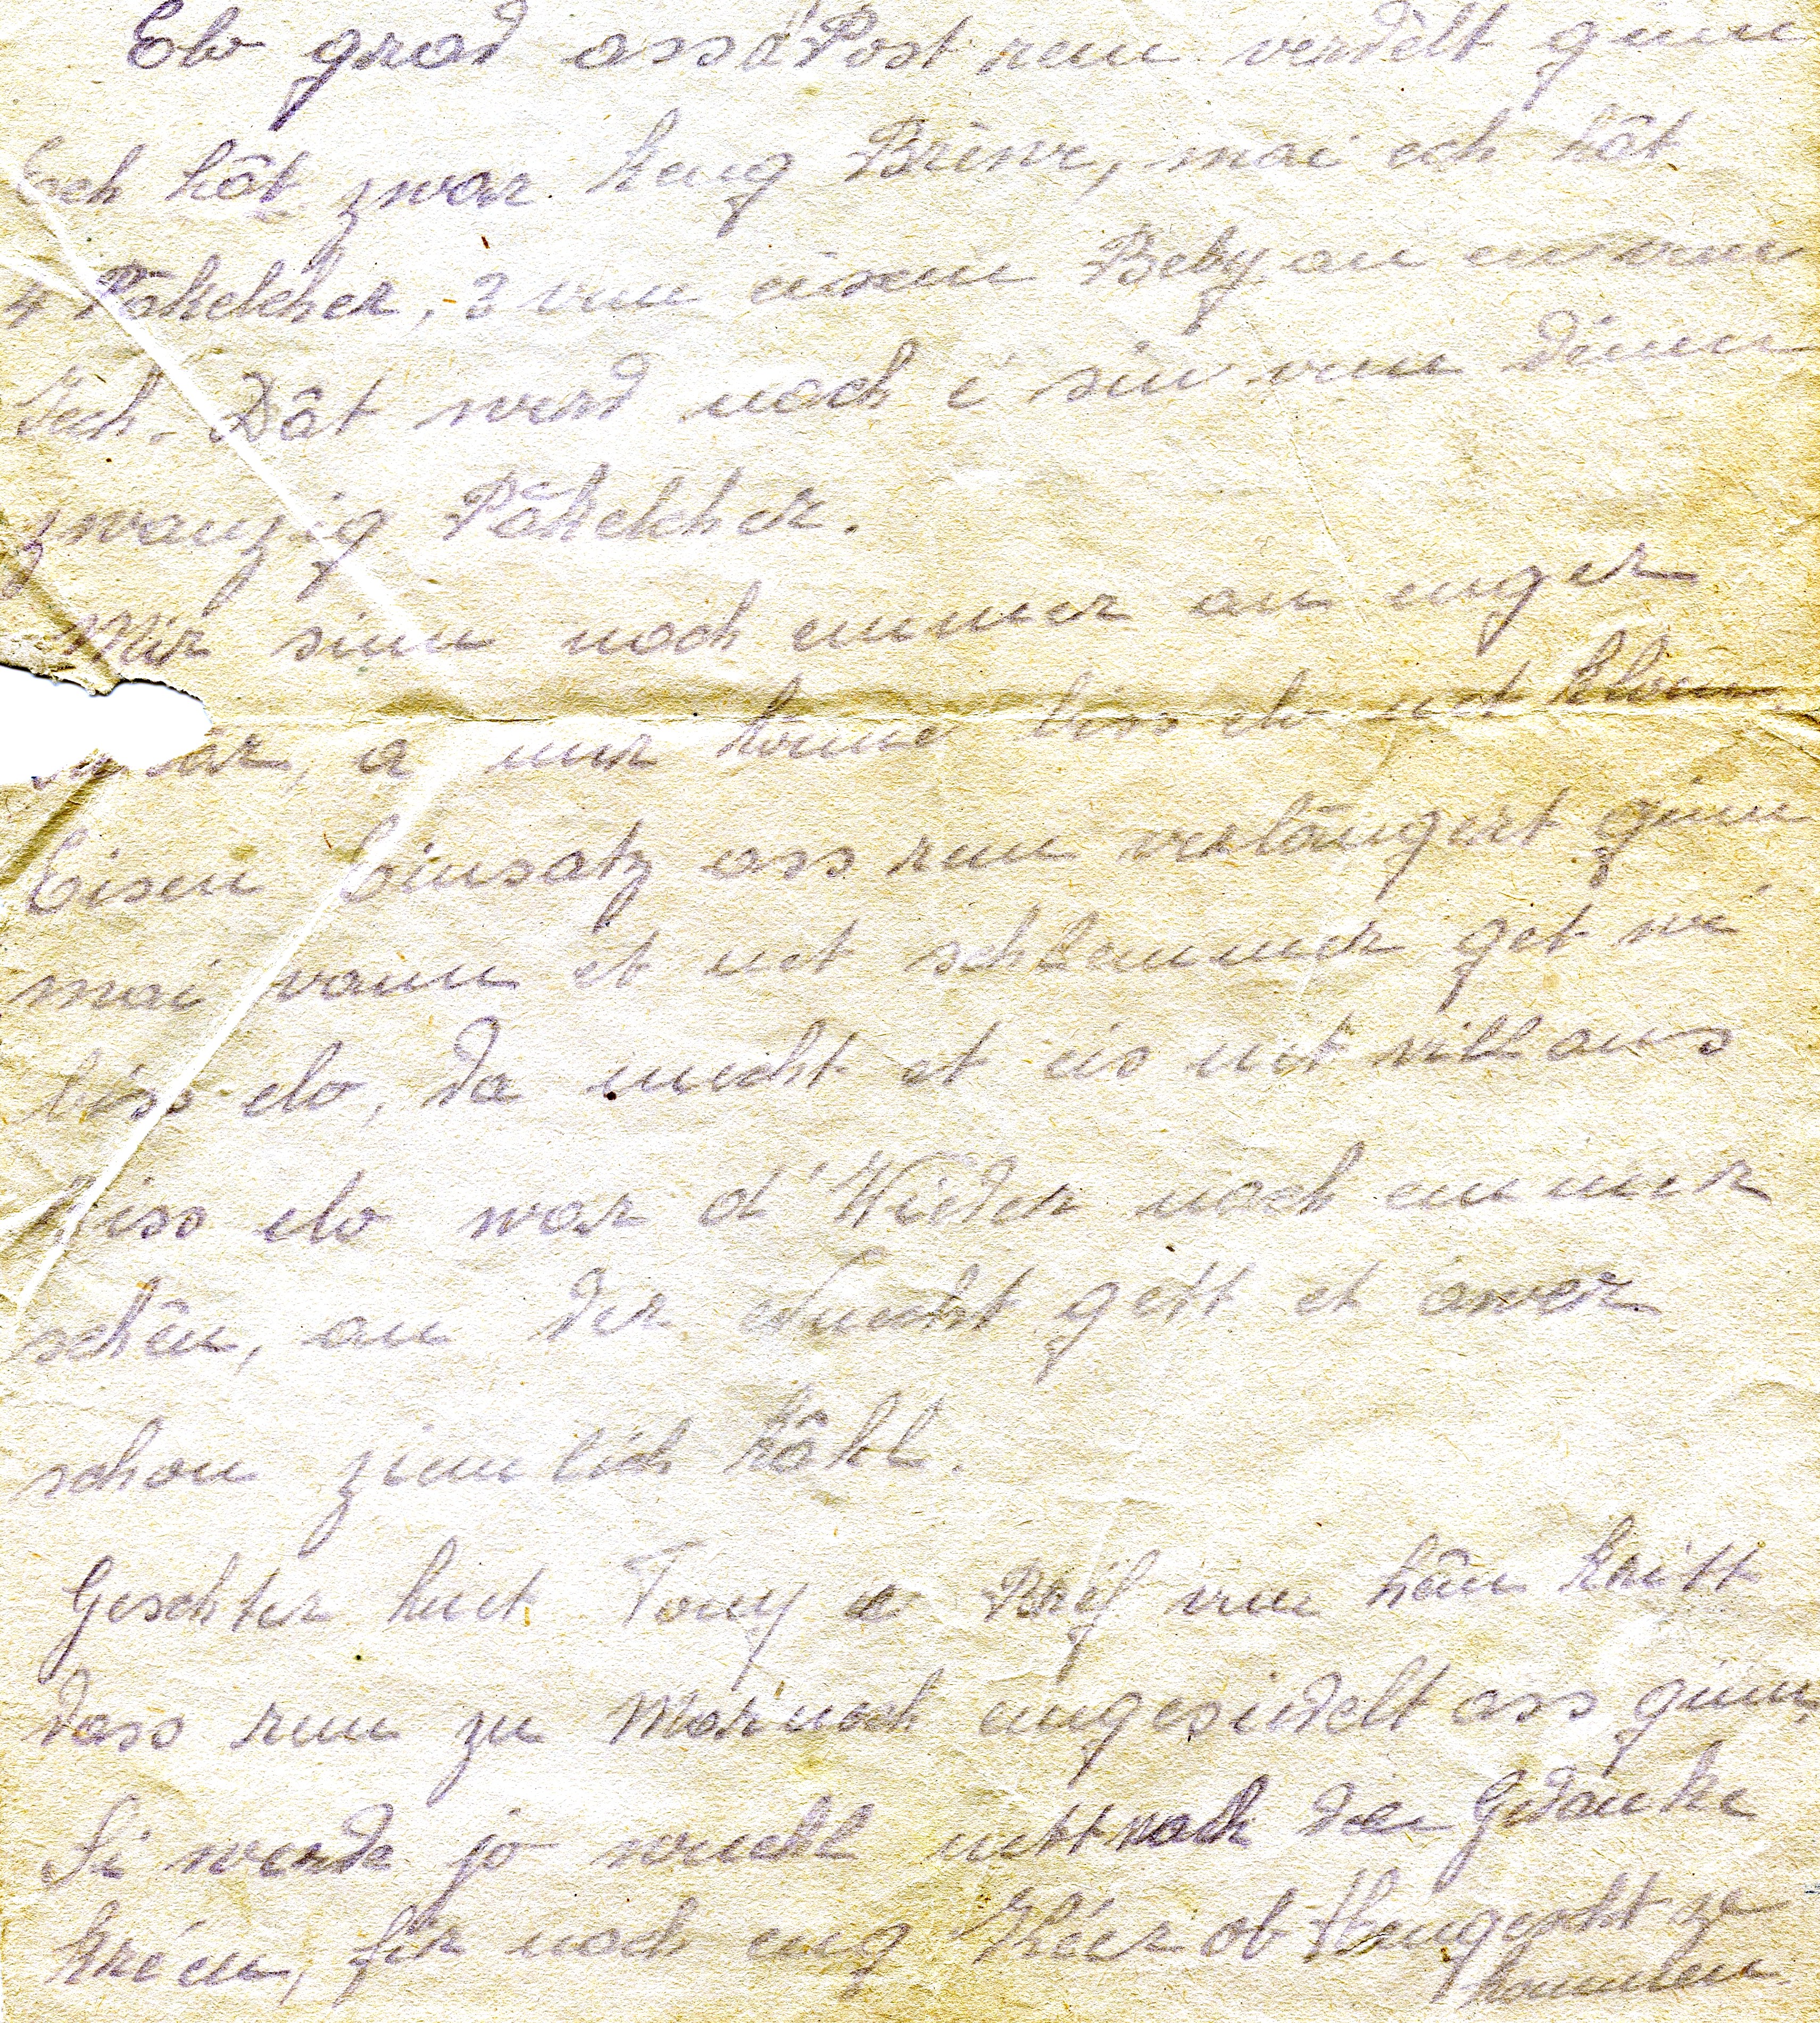 Elo grad ass d'Post rem verdêlt gunn
Ech hât zwar keng Brìwe, mai ech hât
4 Päkelcher, 3 vun eisem Beby an ent vun
Iech. Dât werd noch é sin vun dénen
zwanzig Päkelcher.
Mir sinn noch emmer an enger
är, a mir konne biss elo net kloen,
Eisen Einsatz ass rem verlängert ginn
mai wann et net schlemmer get wé
biss elo, da mecht et eis net vill aus
Biss elo war d'Wieder noch emmer
schên, an der Nuecht gett et awer
schon zimlich kâhl.
Geschter huet Tony e Brìf vun hêm kritt
dass rem zu Marnach emgesidelt ass ginn,
Si werde jo wuehl nett nach den Gedanke
kréien, fir noch eng Kéier ob Hengescht ze
kommen.